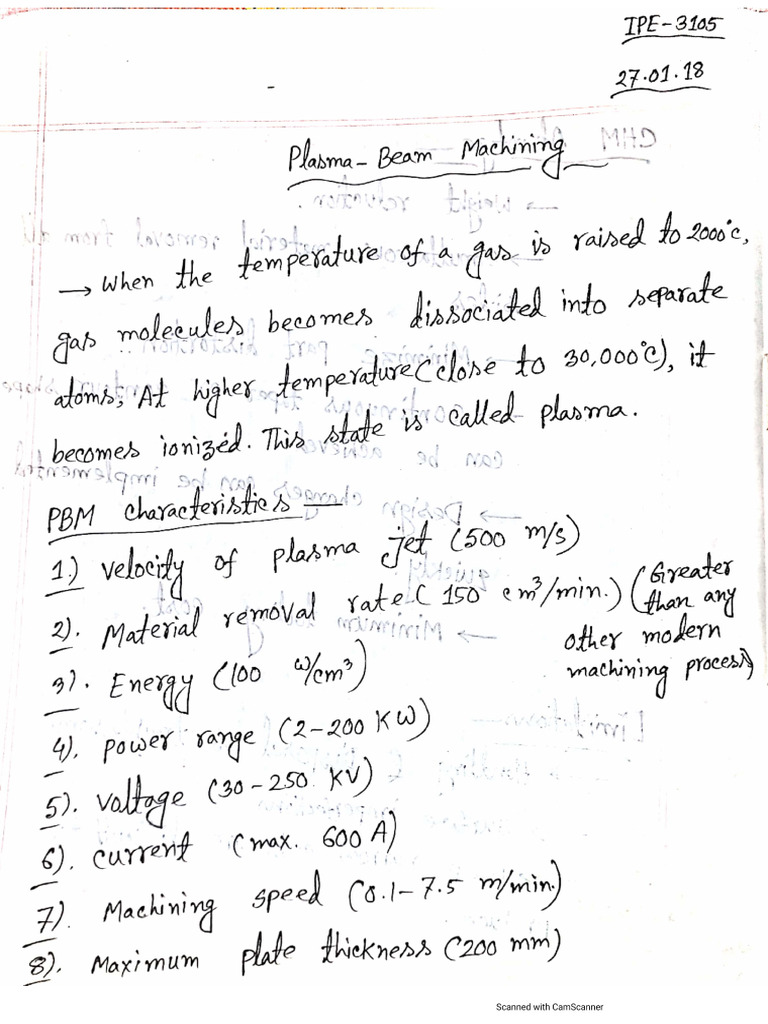 IPE-3105
27.01.18
Plasma-Beam Machining
→ When the temperature of a gas is raised to 2000°c,
gas molecules becomes dissociated into separate
atoms, At higher temperature (close to 30,000°c), it
becomes ionized. This state is called plasma.
PBM characteristics —
1.) Velocity of plasma jet (500 m/s)
2). Material removal rate (150 cm³/min.) (Greater
than any
other modern
machining process)
3). Energy (100 w/cm³)
4). power range (2-200 KW)
5). Voltage (30-250 KV)
6). current (max. 600 A)
7). Machining speed (0.1-7.5 m/min.)
8). Maximum plate thickness (200 mm)
Scanned with CamScanner